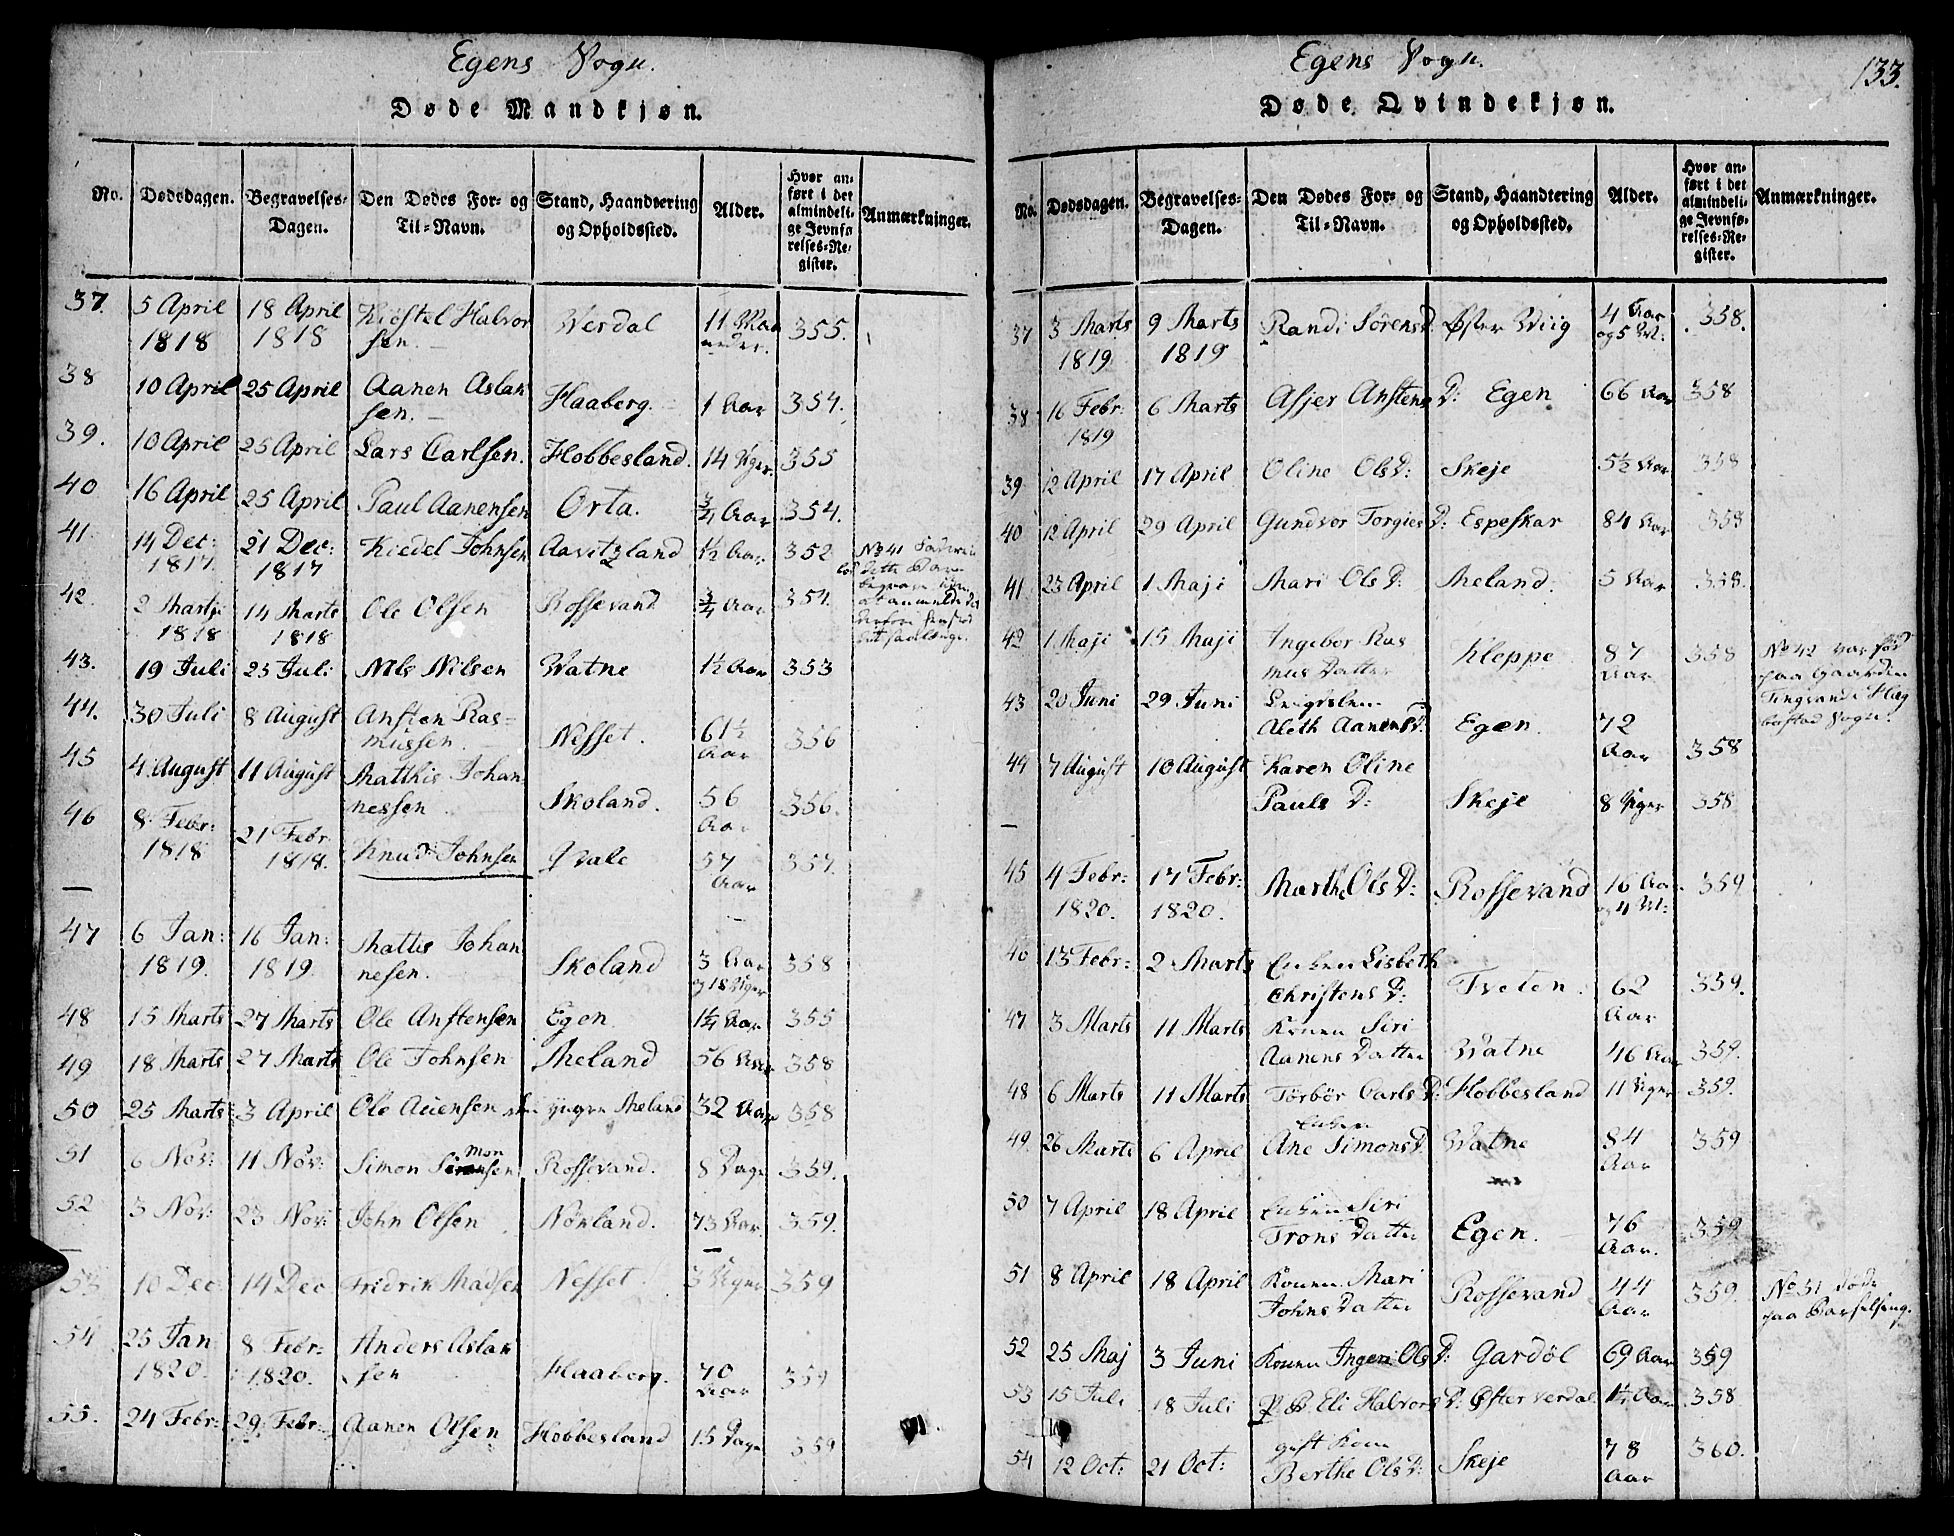 Egens Sogn.
Døde Mandkjøn.
No. Dødsdagen. Begravelses-Dagen. Den Dødes For- og Til-Navn. Stand, Haandtering og Opholdssted. Alder. Hvor anført i det almindelige Jevnførelses-Register. Anmærkninger.
37. 5 April 1818 18 April 1818 Kiøstel Halvorsen. Werdal 11 Maaneder. 355.
38 10 April 25 April Aanen Aslaksen. Haaberg. 1 Aar 354.
39. 10 April 25 April Lars Carlsen. Hobbesland. 14 Uger 355
40 16 April 25 April Paul Aanensen Orta. 3/4 Aar 354.
41. 14 Dec: 1817. 21 Dec: 1817 Kiedel Johnsen Aavitzland 1½ Aar 352 No 41 dette Barn begrave uden at anmelde det derfore
42. 2 Martji 1818 14 Marts 1818 Ole Olsen Rossevand 3/4 Aar 354.
43. 19 Juli 25 Juli Nils Nilsen Watne 1½ Aar 353
44. 30 Juli 8 August Ansten Rasmussen. Nesset. 61½ Aar 356
45 4 August 11 August Matthis Johannessen. Skoland. 56 Aar 356.
46 8 Febr: 1818 21 Febr 1818. Knud Johnsen Qvale 57 Aar 357.
47 6 Jan: 1819. 16 Jan: 1819. Mattis Johannesen. Skoland 3 Aar og 18 Uger 358
48 15 Marts 27 Marts Ole Anstensen Egen 1¼ Aar 355
49 18 Marts 27 Marts Ole Johnsen Meland 56 Aar 358
50 25 Marts 3 April Ole Auensen Meland 32 Aar 358
51 6 Nov: 11 Nov: Simon Simonsen Rossevand. 8 Dage 359.
52 3 Nov: 23 Nov: John Olsen Nørland. 73 Aar. 359.
53 10 Dec 14 Dec Fredrik Madsen Nesset. 3 Uger 359
54 25 Jan 1820. 8 Febr: 1820. Anders Aslaksen Haaberg. 70 Aar 359
55. 24 Febr: 29 Febr: Aanen Olsen Hobbesland 15 Dage 359
Egens Sogn.
133.
Døde Qvindekjøn.
No. Dødsdagen. Begravelses-Dagen. Den Dødes For- og Til-Navn. Stand, Haandtering og Opholdssted. Alder. Hvor anført i det almindelige Jevnførelses-Register. Anmærkninger.
37 3 Marts 1819. 9 Marts 1819 Randi Sørensd. Øster Wiig 4 Aar og 5 M: 358.
38 16 Febr: 1819 6 Marts Asjer Anstens D: Egen 66 Aar 358
39 12 April 17 April Oline Ols D: Skeje 5½ Aar 358
40 12 April 29 April Gundvor Torgies D: Espeskar 84 Aar 358
41 23 April 1 Maji Mari Ols D: Meland. 5 Aar 358.
42 1 Maji 15 Maji Ingebor Rasmus Datter Kleppe 87 Aar 358 No 42 var fød paa Gaarden Tingvand i Hægbostad Sogn.
43 20 Juni 29 Juni Aleth Aanens D: Egen. 72 Aar 358
44 7 August 10 August Karen Oline Pauls D: Skeje 8 Uger 358
45 4 Febr: 1820. 17 Febr: 1820. Marthe Ols D: Rossevand 16 Aar og 4 M: 359
46 13 Febr: 2 Marts Enken Lisbeth Christens D: Tveten. 62 Aar 359.
47 3 Marts 11 Marts Konen Siri Aanens Datter Watne 46 Aar 359.
48 6 Marts 11 Marts Torbør Carls D: Hobbesland 11 Uger 359.
49. 26 Marts 6 April Enken Ane Simons D. Watne 84 Aar 359
50 7 April 18 April Enken Siri Trons Datter Egen. 76 Aar. 359
51 8 April 18 April Konen Mari Johns Datter Rossevand 44 Aar 359. No 51 døde paa Barselseng.
52 25 Maj 3 Juni Konen Ingeri Ols D: Gardøl 69 Aar 359
53 15 Juli 18 Juli P B Eli Halvors D: Øster Verdal 1¼ Aar 358
54 12 Oct: 21 Oct: gift Kone Berthe Ols D: Skeje 78 Aar 360.